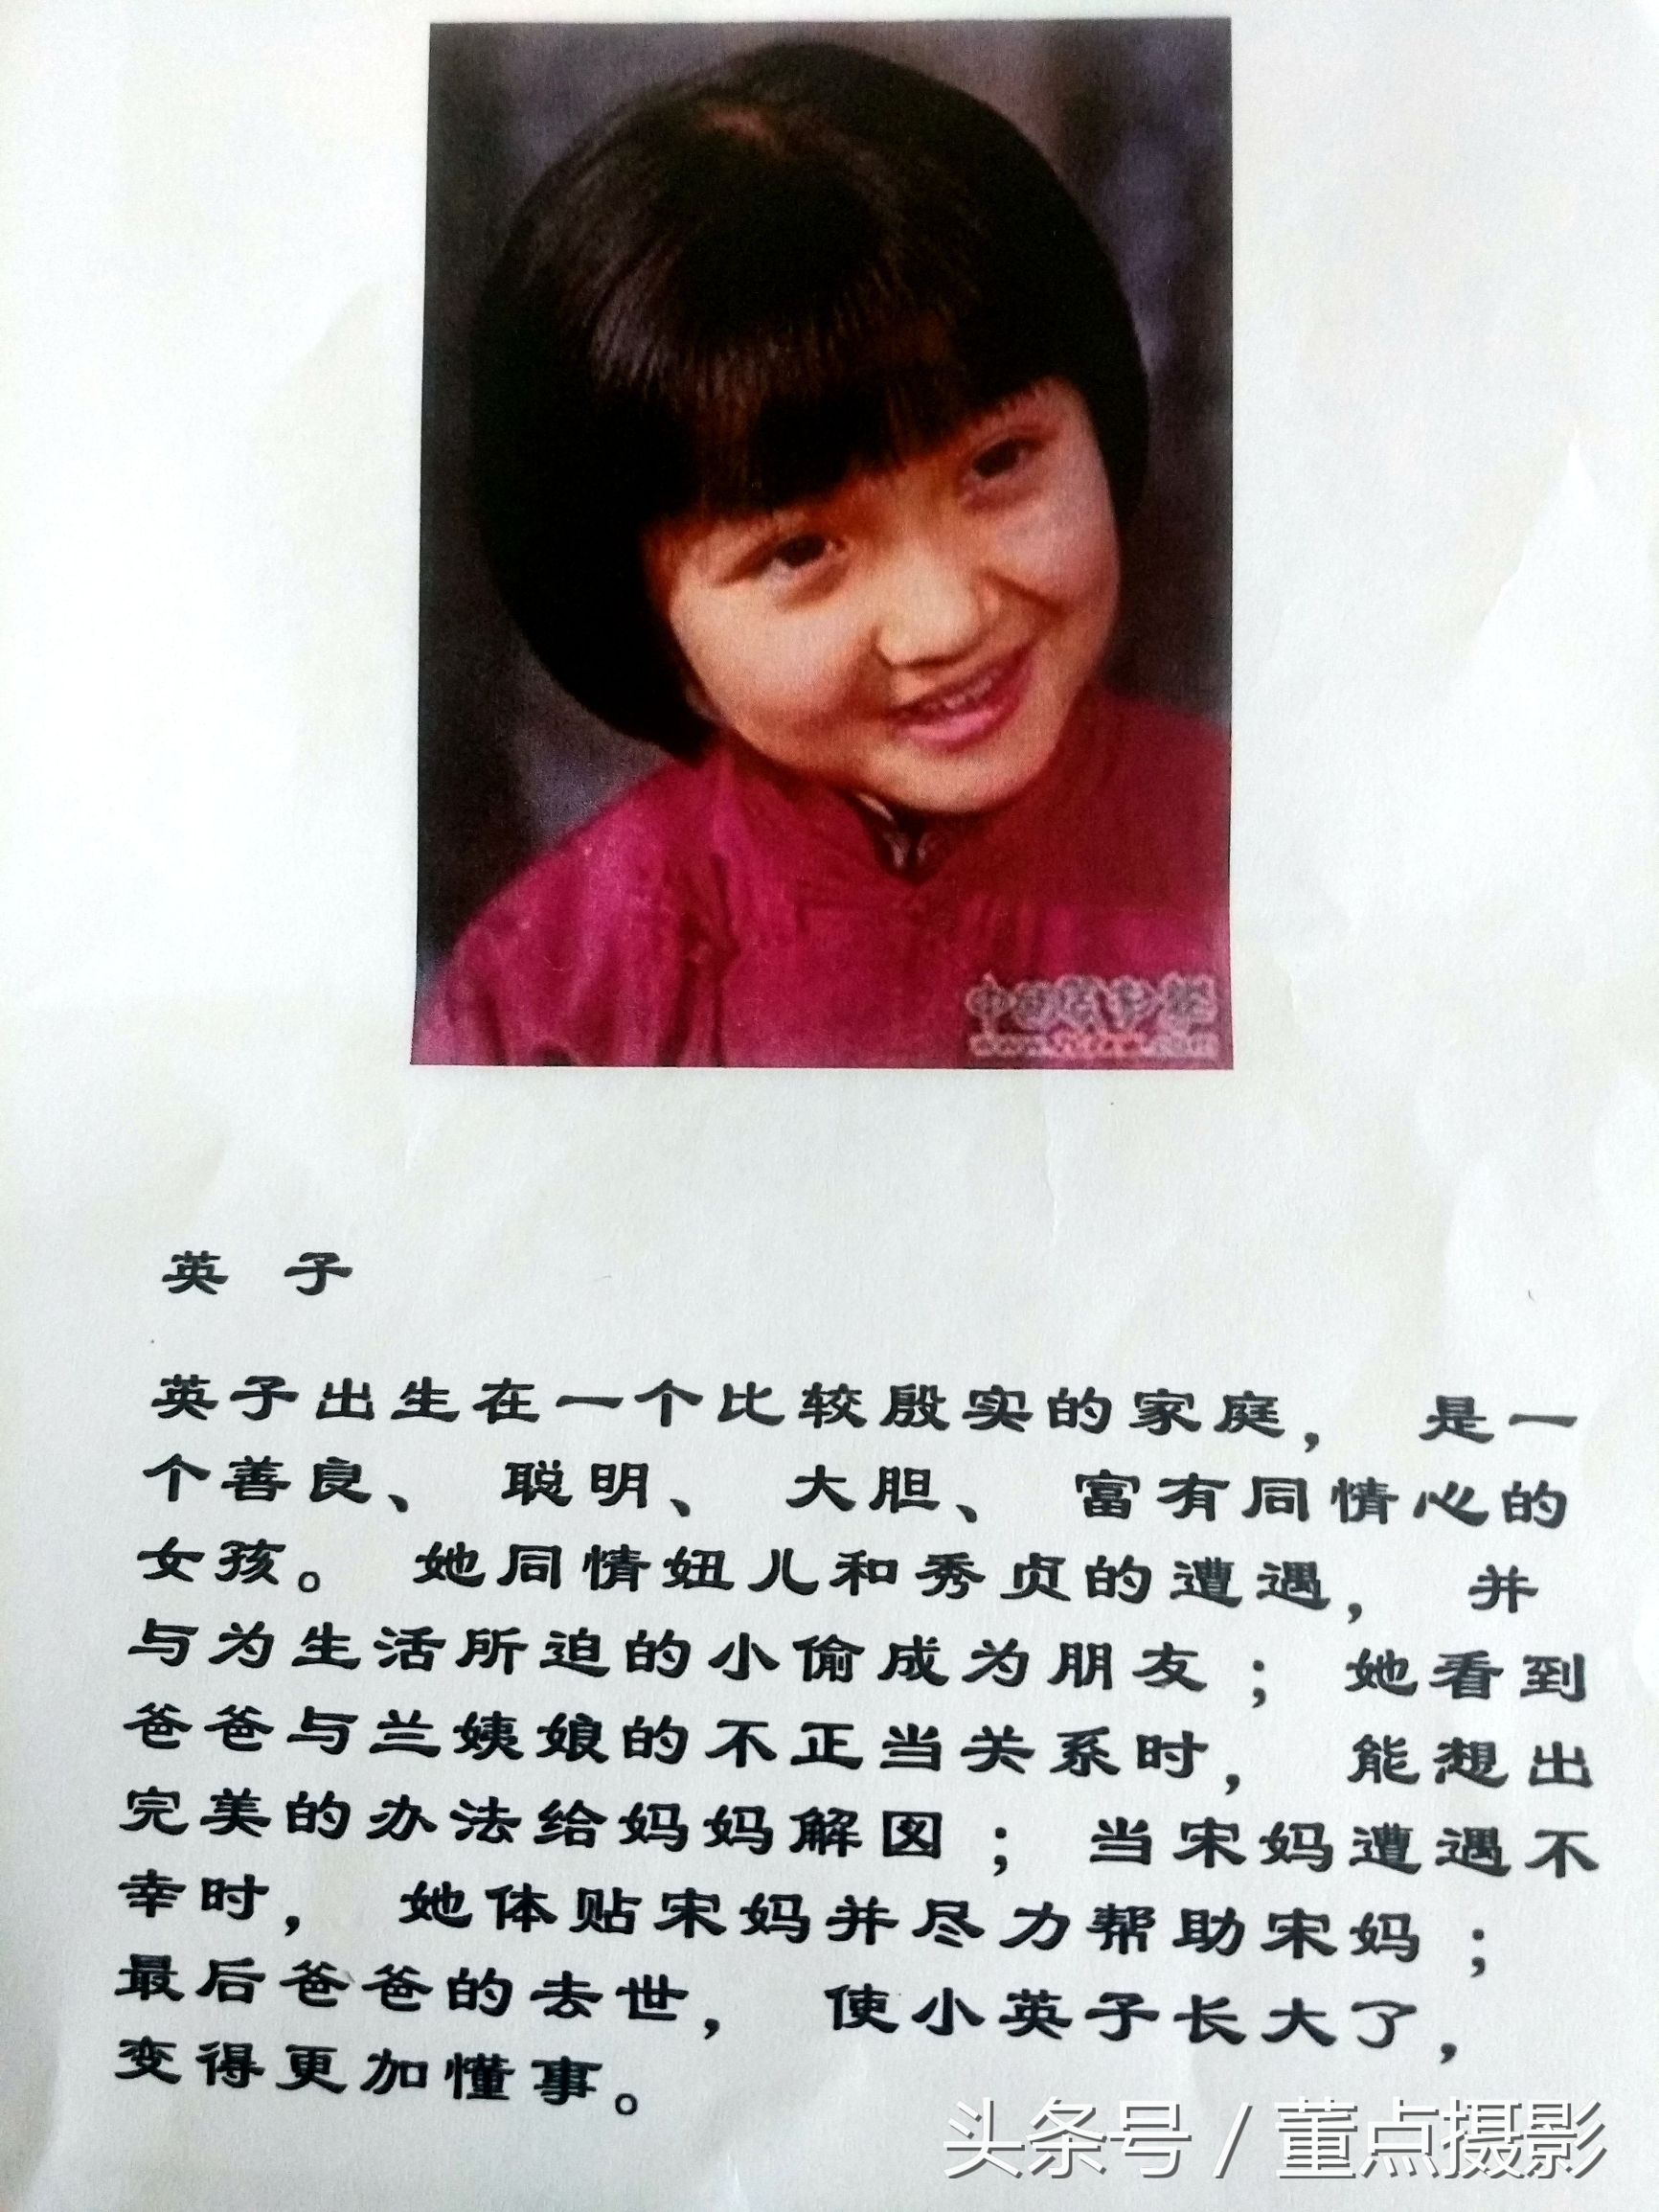 英 子
英子出生在一个比较殷实的家庭， 是一
个善良、 聪明、 大胆、 富有同情心的
女孩。 她同情妞儿和秀贞的遭遇， 并
与为生活所迫的小偷成为朋友； 她看到
爸爸与兰姨娘的不正当关系时， 能想出
完美的办法给妈妈解囡； 当宋妈遭遇不
幸时， 她体贴宋妈并尽力帮助宋妈；
最后爸爸的去世， 使小英子长大了，
变得更加懂事。
头条号 / 董点摄影